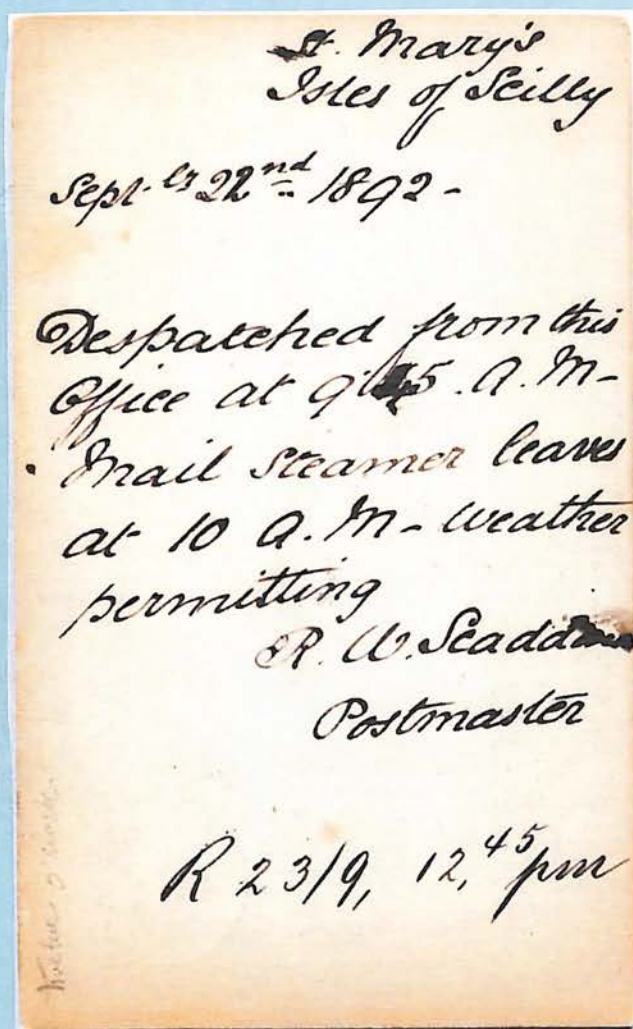 St. Mary's
Isles of Scilly
Sept. er 22nd 1892 -
Despatched from this
Office at 9 45. A. M -
Mail steamer leaves
at 10 A. M - weather
permitting
R. W.
Postmaster
R 23/9, 12,45 pm